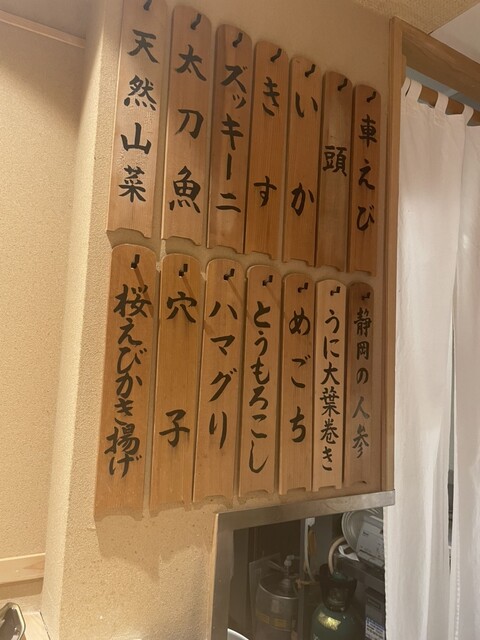 車えび
頭
いか
きす
ズッキーニ
太刀魚
天然山菜
静岡の人参
うに大葉巻き
めごち
とうもろこし
ハマグリ
穴子
桜えびかき揚げ